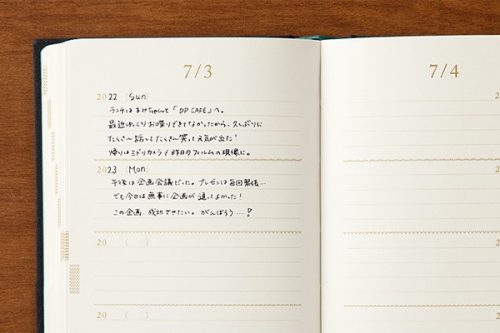 7/3
2022 (Sun)
ランチは まみちゃんと 「DP CAFE」へ。
最近ゆっくりお喋りできてなかったから、久しぶりに
たくさん話してたくさん笑って元気が出た!
帰りはミドリカメラで昨日のフィルムの現像に。
2023 (Mon)
午後は企画会議だった。プレゼンは毎回緊張…
でも今日は無事に企画が通ってよかった!
この企画、成功させたい。がんばろう…!
20 ( )
20 ( )
7/4
2
2
2
2